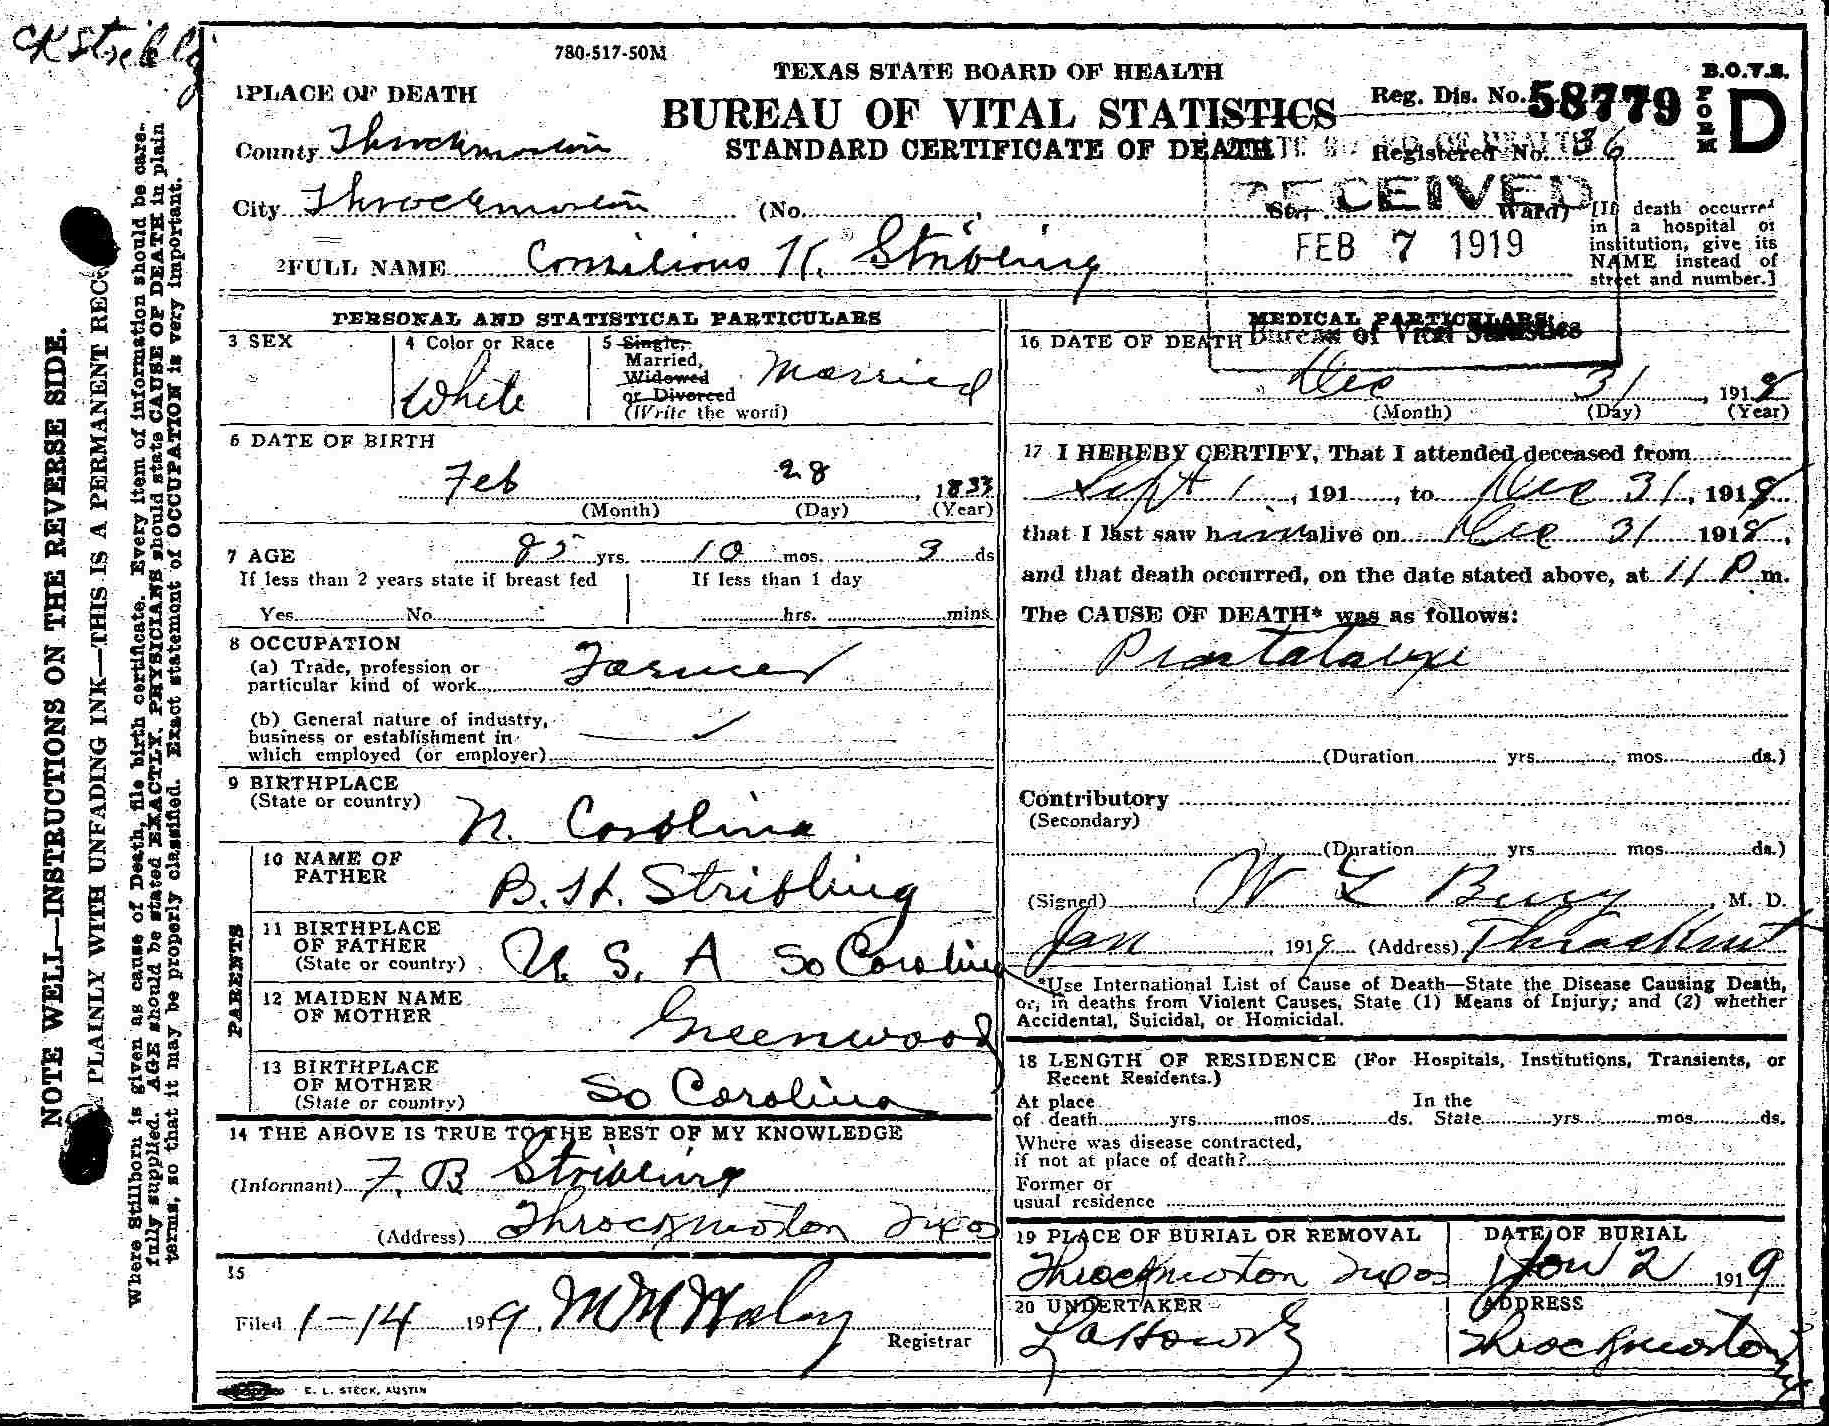 CK Stribling
780-517-50M
TEXAS STATE BOARD OF HEALTH
BUREAU OF VITAL STATISTICS
STANDARD CERTIFICATE OF DEATH
B.O.V.S.
FORM D
Reg. Dis. No. 58779
Registered No. 86
STATE BOARD OF HEALTH
RECEIVED
FEB 7 1919
Bureau of Vital Statistics
1 PLACE OF DEATH
County Throckmorton
City Throckmorton (No. St. Ward)
[If death occurred in a hospital or institution, give its NAME instead of street and number.]
2 FULL NAME K. Stribling
PERSONAL AND STATISTICAL PARTICULARS
3 SEX
4 Color or Race
White
5 Single, Married, Widowed or Divorced
(Write the word)
Married
6 DATE OF BIRTH
Feb 28, 1833
(Month) (Day) (Year)
7 AGE 85 yrs. 10 mos. 3 ds
If less than 2 years state if breast fed
Yes No
If less than 1 day
hrs. mins.
8 OCCUPATION
(a) Trade, profession or
particular kind of work Farmer
(b) General nature of industry,
business or establishment in
which employed (or employer)
9 BIRTHPLACE
(State or country) N. Carolina
PARENTS
10 NAME OF
FATHER B. H. Stribling
11 BIRTHPLACE
OF FATHER
(State or country) U. S. A So Carolina
12 MAIDEN NAME
OF MOTHER Greenwood
13 BIRTHPLACE
OF MOTHER
(State or country) So Carolina
14 THE ABOVE IS TRUE TO THE BEST OF MY KNOWLEDGE
(Informant) F. B Stribling
(Address) Throckmorton Texas
15
Filed 1-14 1919. M M Haley
Registrar
E. L. STECK, AUSTIN
MEDICAL PARTICULARS
16 DATE OF DEATH
Dec 31, 1918
(Month) (Day) (Year)
17 I HEREBY CERTIFY, That I attended deceased from
Sept 1, 191 , to Dec 31, 1918
that I last saw him alive on Dec 31 1918,
and that death occurred, on the date stated above, at 11 P m.
The CAUSE OF DEATH* was as follows:
(Duration yrs. mos. ds.)
Contributory
(Secondary)
(Duration yrs. mos. ds.)
(Signed) W L , M. D.
Jan , 1919 (Address)
*Use International List of Cause of Death—State the Disease Causing Death,
or, in deaths from Violent Causes, State (1) Means of Injury; and (2) whether
Accidental, Suicidal, or Homicidal.
18 LENGTH OF RESIDENCE (For Hospitals, Institutions, Transients, or
Recent Residents.)
At place In the
of death yrs. mos. ds. State yrs. mos. ds.
Where was disease contracted,
if not at place of death?
Former or
usual residence
19 PLACE OF BURIAL OR REMOVAL
Throckmorton Texas
DATE OF BURIAL
Jan 2 1919
20 UNDERTAKER
ADDRESS
Throckmorton
NOTE WELL—INSTRUCTIONS ON THE REVERSE SIDE.
PLAINLY WITH UNFADING INK—THIS IS A PERMANENT RECORD
Where Stillborn is given as cause of Death, file birth certificate. Every item of information should be care-
fully supplied. AGE should be stated EXACTLY. PHYSICIANS should state CAUSE OF DEATH in plain
terms, so that it may be properly classified. Exact statement of OCCUPATION is very important.